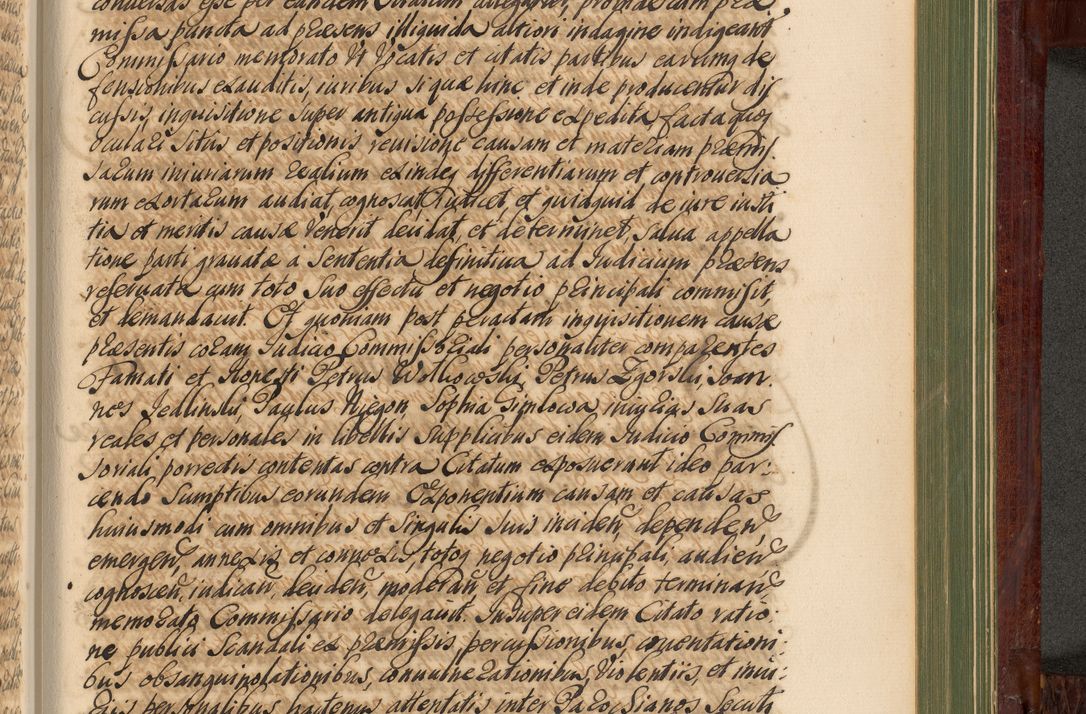 condensas esse per eandem Citatum allegatur, propriae cum prae
missa puncta ad praesens illiquida altiori indagine indigeant
Commissario memorato Vt Vocatis et citatis partibus earumq de
fensionibus exauditis, iuribus si quae hinc et inde producentur dis
cussis, inquisitione super antiqua possessione expedita, facta quoq
oculari situs et positionis revisione causam et materiam praemis
sarum iniuriarum realium exindeq differentiarum et controversia
rum exortarum audiat, cognoscat, iudicet et quidquid de iure iusti
tia et meritis causae Venerit decidat, et determinet, salva appella
tione parti gravatae a Sententia definitiva ad Iudicium praesens
reservata cum toto suo effectu et negotio principali commisit,
et demandavit. Et quoniam post peractam inquisitionem causae
praesentis coram Iudicio Commissoriali personaliter comparentes
Famati et Honesti Petrus Wolkowski, Petrus Zgorski, Joan
nes Jedlinski, Paulus Niegon, Sophia Simlowa iniurias suas
reales et personales in libellis supplicibus eidem Iudicio Commis
soriali porrectis contentas contra Citatum exposuerunt ideo par:
cendo Sumptibus eorundem Exponentium causam et causas
huiusmodi cum omnibus et singulis suis inciden, dependen,
emergen, annexis et connexis, totoq negotio principali, audien
cognoscen, iudican, deciden, moderan, et fine debito terminan
memorato Commissario delegavit. Insuper eidem Citato ratio:
ne publici Scandali ex praemissis, percussionibus, cruentationi:
bus obsanguinolationibus, convulnerationibus, Violentiis, et iniu:
riis personalibus hactenus attentatis inter Parochianos Secuti